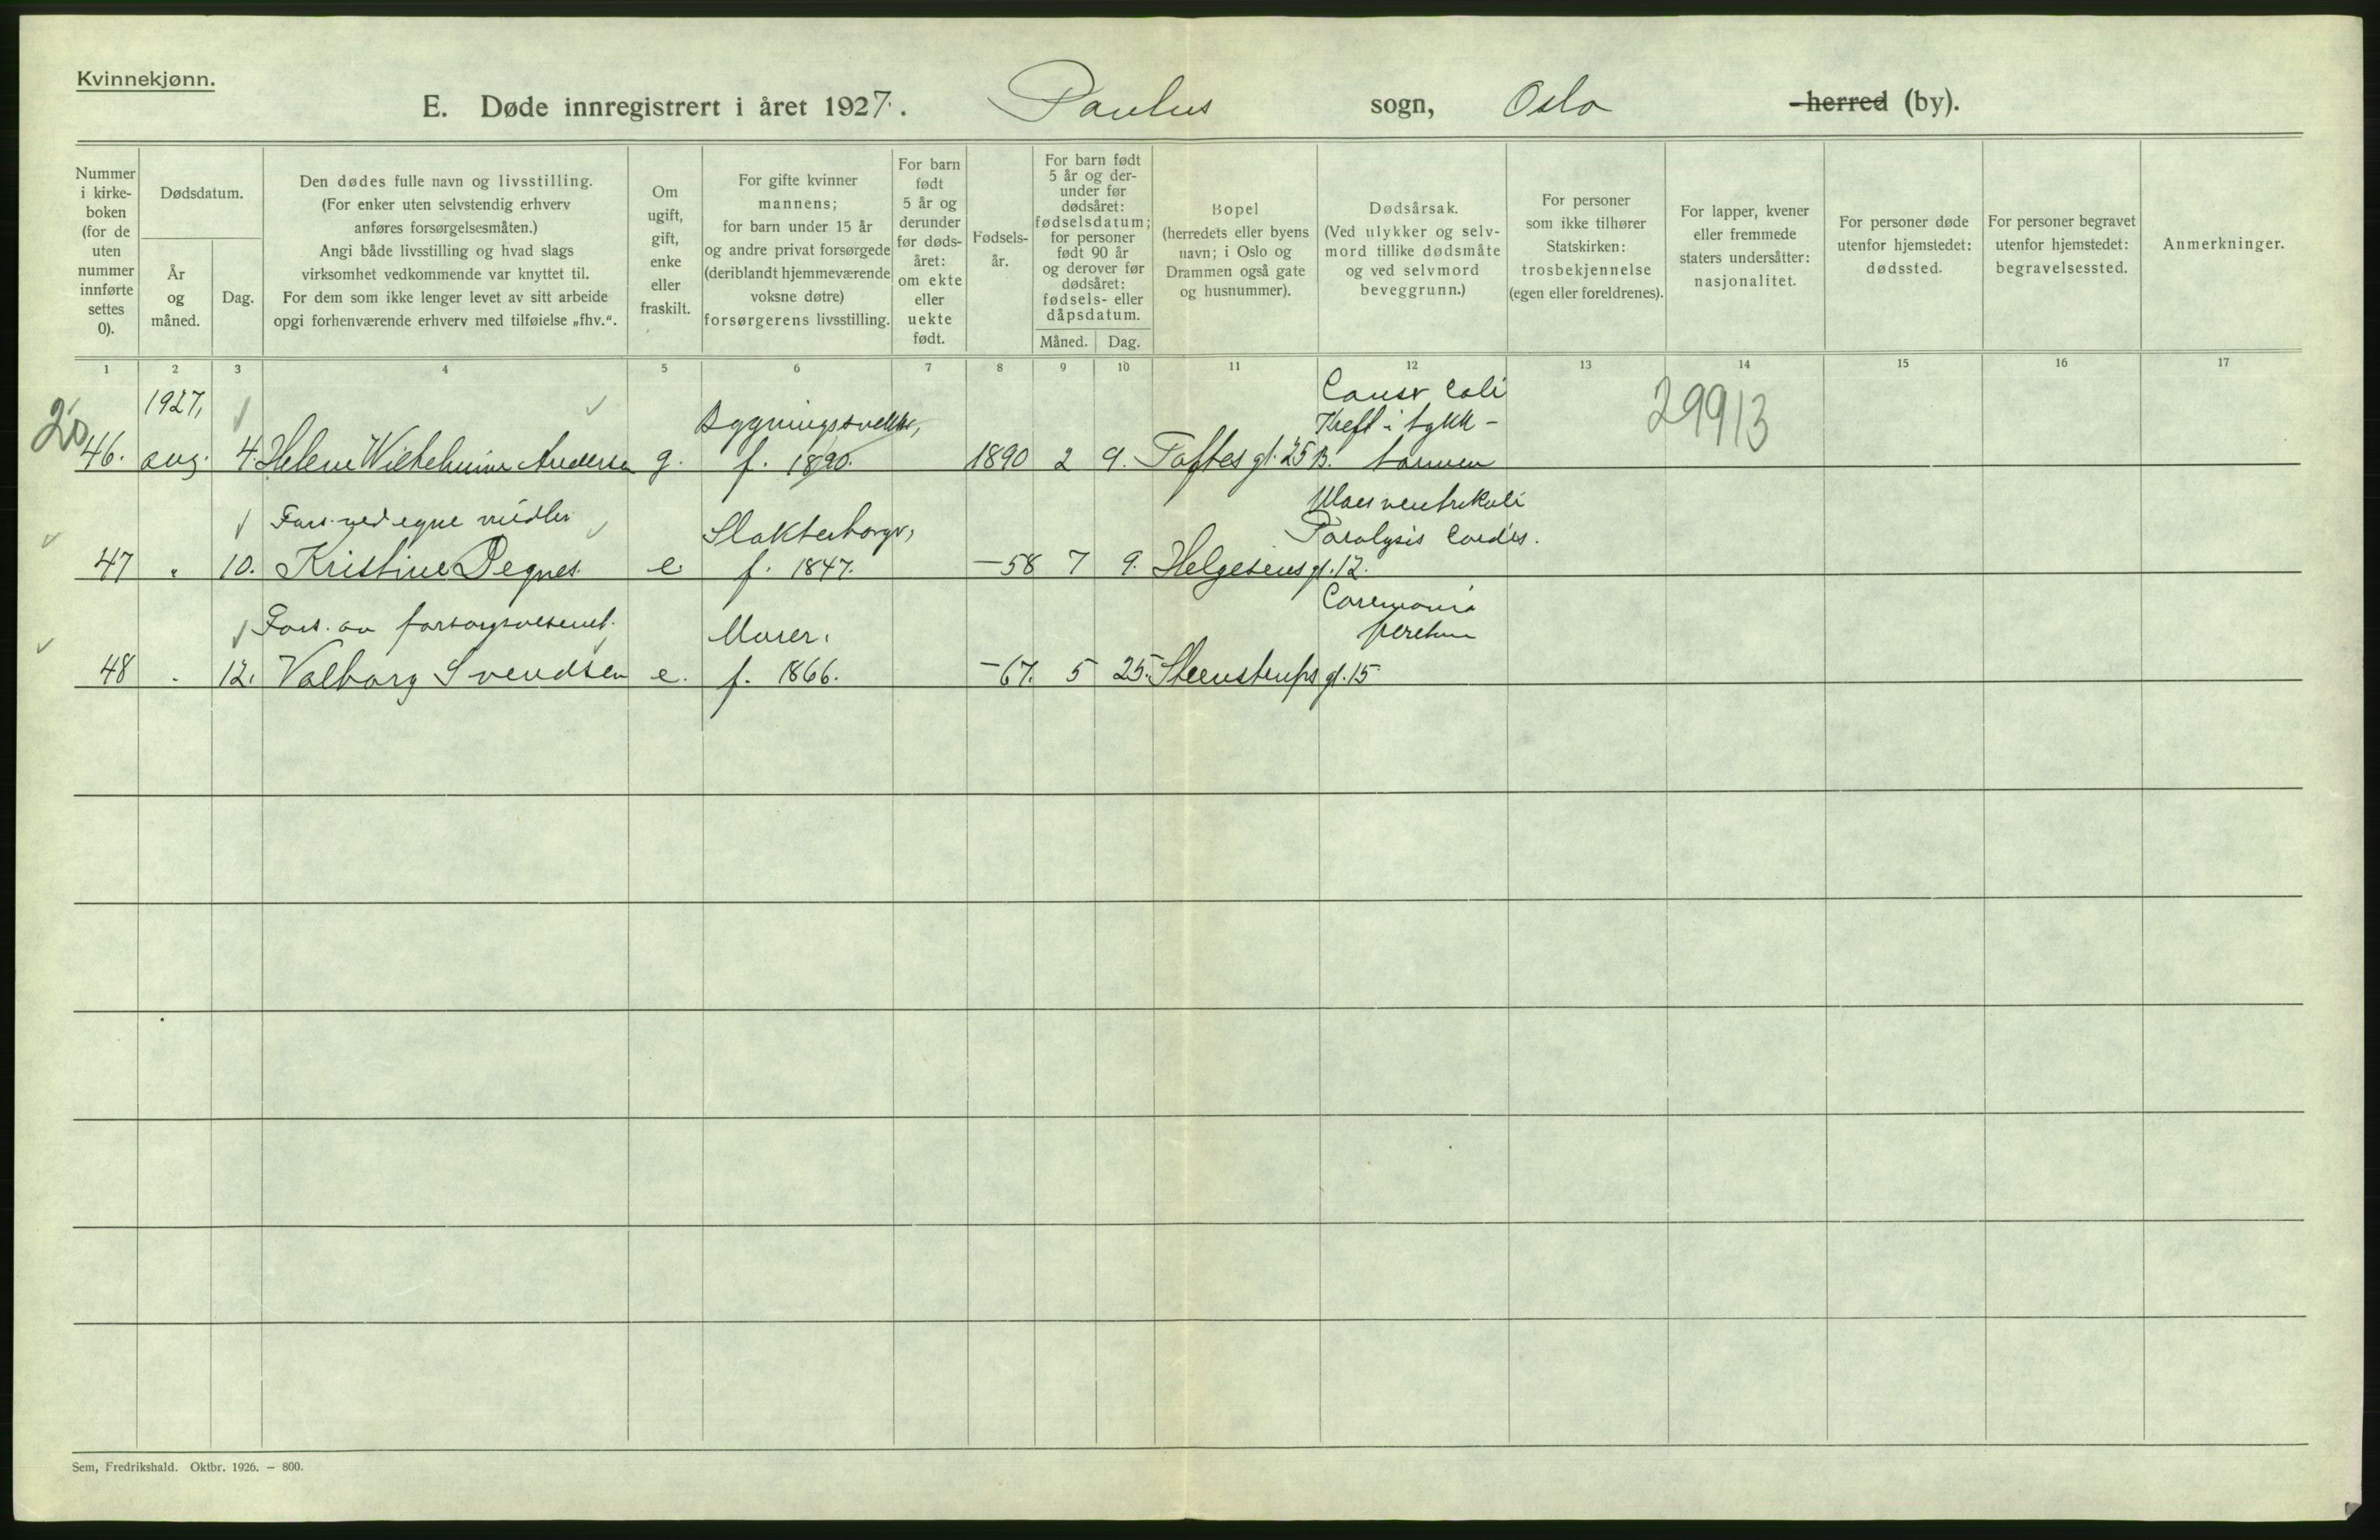 Kvinnekjønn.
E. Døde innregistrert i året 1927. Paulus sogn, Oslo herred (by).
Nummer i kirke- boken (for de uten nummer innførte settes 0).
Dødsdatum.
År og måned.
Dag.
Den dødes fulle navn og livsstilling.
(For enker uten selvstendig erhverv
anføres forsørgelsesmåten.)
Angi både livsstilling og hvad slags
virksomhet vedkommende var knyttet til.
For dem som ikke lenger levet av sitt arbeide
opgi forhenværende erhverv med tilføielse „fhv.“.
Om ugift, gift, enke eller fraskilt.
For gifte kvinner
mannens;
for barn under 15 år
og andre privat forsørgede
(deriblandt hjemmeværende
voksne døtre)
forsørgerens livsstilling.
For barn født 5 år og derunder før døds- året: om ekte eller uekte født.
Fødsels- år.
For barn født
5 år og der-
under før
dødsåret:
fødselsdatum;
for personer
født 90 år
og derover før
dødsåret:
fødsels- eller
dåpsdatum.
Måned. Dag.
Bopel
(herredets eller byens
navn; i Oslo og
Drammen også gate
og husnummer).
Dødsårsak.
(Ved ulykker og selv-
mord tillike dødsmåte
og ved selvmord
beveggrunn.)
For personer
som ikke tilhører
Statskirken:
trosbekjennelse
(egen eller foreldrenes).
For lapper, kvener
eller fremmede
staters undersåtter:
nasjonalitet.
For personer døde
utenfor hjemstedet:
dødssted.
For personer begravet
utenfor hjemstedet:
begravelsessted.
Anmerkninger.
1 2 3 4 5 6 7 8 9 10 11 12 13 14 15 16 17
1927,
Cancer Coli
Kreft i tykk-
29913
46. aug. 4. Helene Wilhelmine Andersen g. f. 1890. 1890 2 9. Toftes gt. 25 B. tarmen
Fors. ved egne midler
Slakterborger,
Ulcus ventrikuli
Paralysis Cordis.
47 " 10. Kristine Pegnes. e. f. 1847. -58 7 9. Helgesens gt. 12.
Fors. av forsorgsvesenet.
Murer.
48 " 12. Valborg Svendsen e. f. 1866. -67. 5 25. Steenstrups gt. 15
Sem, Fredrikshald. Oktbr. 1926. – 800.